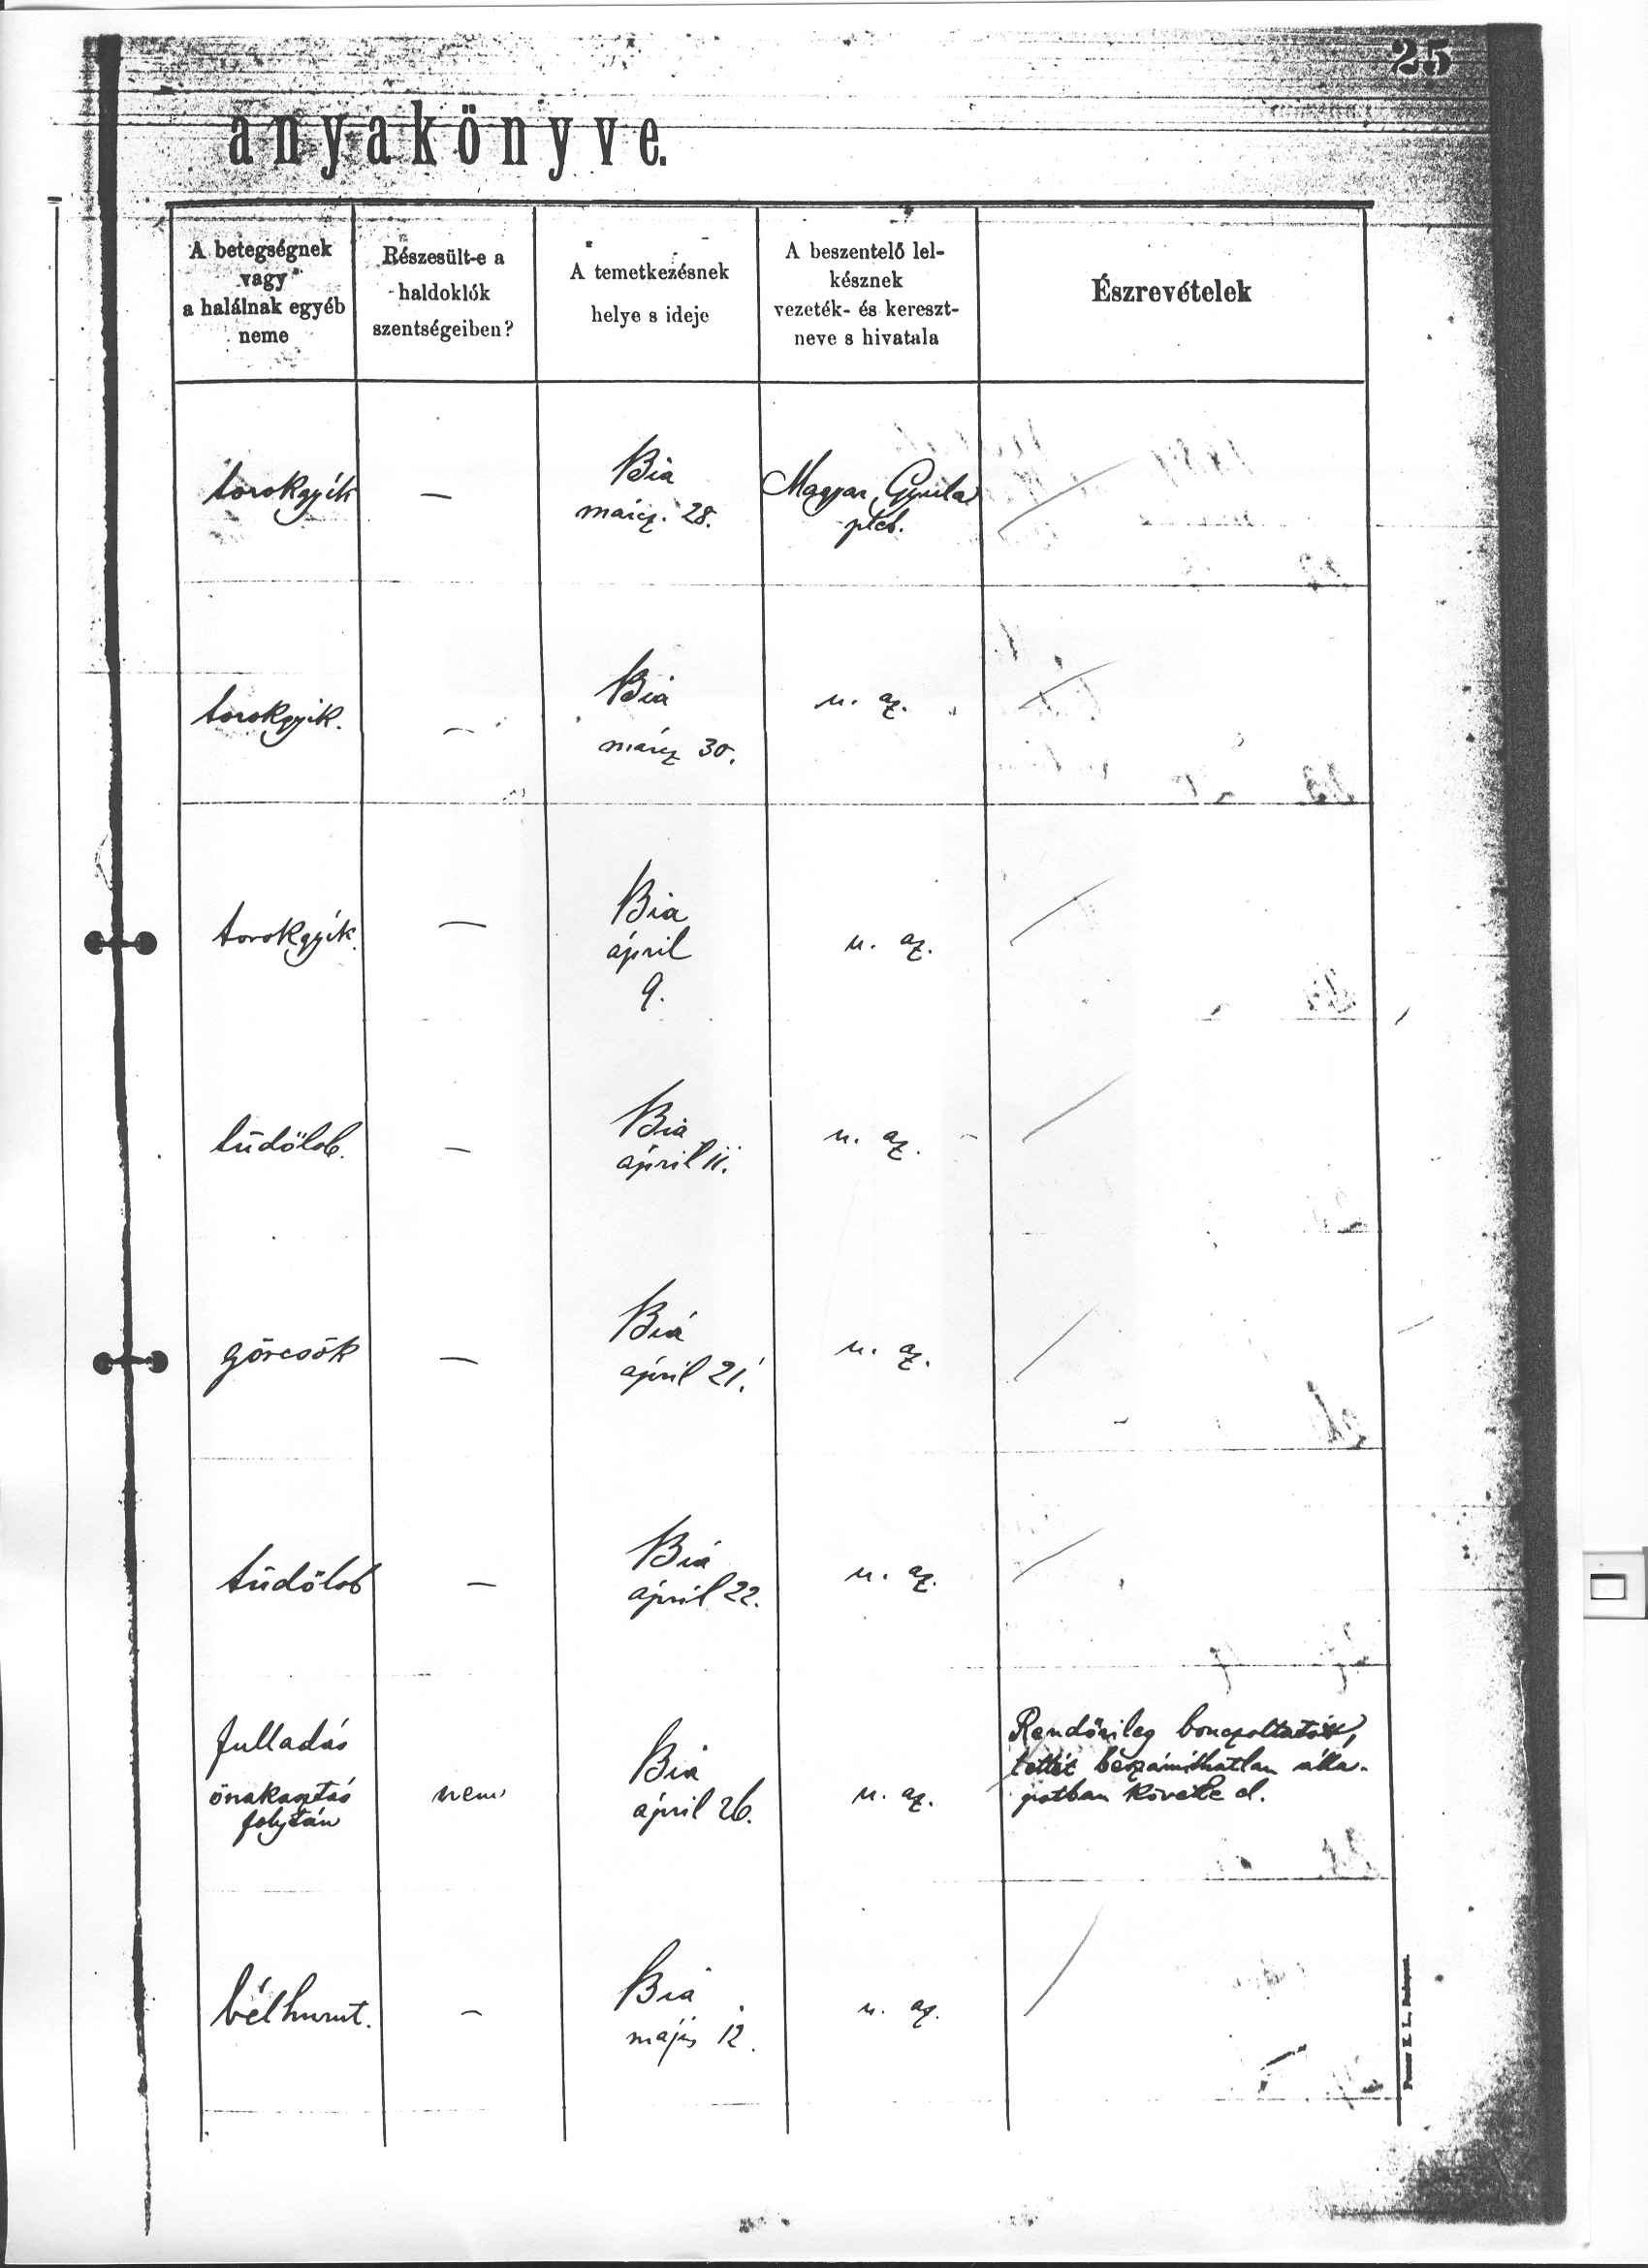 25
anyakönyve.
A betegségnek
vagy
a halálnak egyéb
neme
Részesült-e a
haldoklók
szentségeiben?
A temetkezésnek
helye s ideje
A beszentelő lel-
késznek
vezeték- és kereszt-
neve s hivatala
Észrevételek
torokgyík
—
Bia
márcz. 28.
Magyar Gyula
pleb.
torokgyík.
—
Bia
márcz 30.
u. az.
torokgyík.
—
Bia
április
9.
u. az.
tüdőlob.
—
Bia
április 11.
u. az.
görcsök
—
Bia
április 21.
u. az.
tüdőlob
—
Bia
április 22.
u. az.
fulladás
önakasztás
folytán
nem
Bia
április 26.
u. az.
Rendőrileg bonczoltatott,
tettét beszámíthatlan álla-
potban követte el.
bélhurut.
—
Bia
május 12.
u. az.